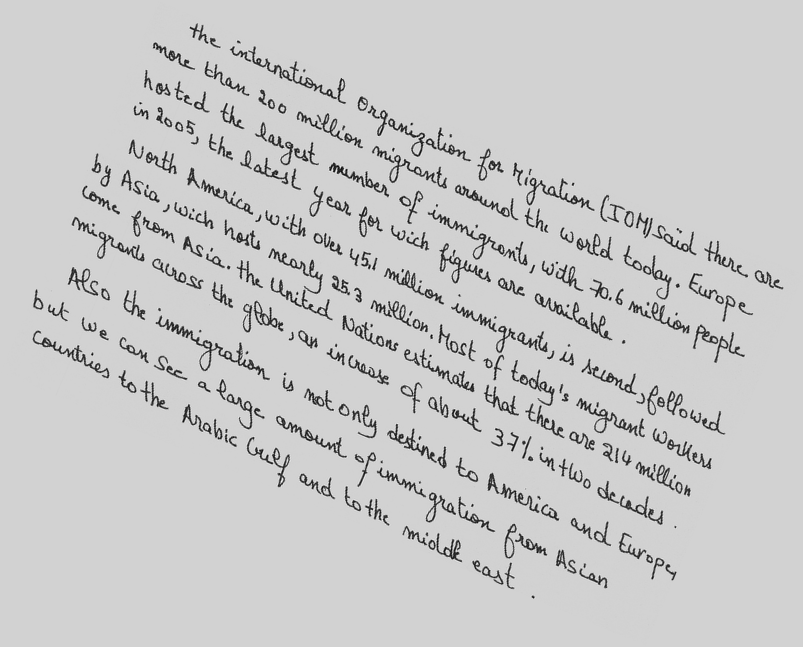 the international organization for Migration (IOM) said there are
more than 200 million migrants around the world today. Europe
hosted the largest number of immigrants, with 70.6 million people
in 2005, the latest year for wich figures are available.
North America, with over 45,1 million immigrants, is second, followed
by Asia, wich hosts nearly 25.3 million. Most of today's migrant workers
come from Asia. the United Nations estimates that there are 214 million
migrants across the globe, an increase of about 37% in two decades.
Also the immigration is not only destined to America and Europe,
but we can see a large amount of immigration from Asian
countries to the Arabic Gulf and to the middle east.